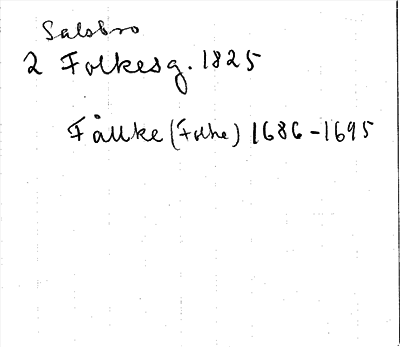 Salobro
2 Folkesg. 1825
Fållke (Folke) 1686-1695